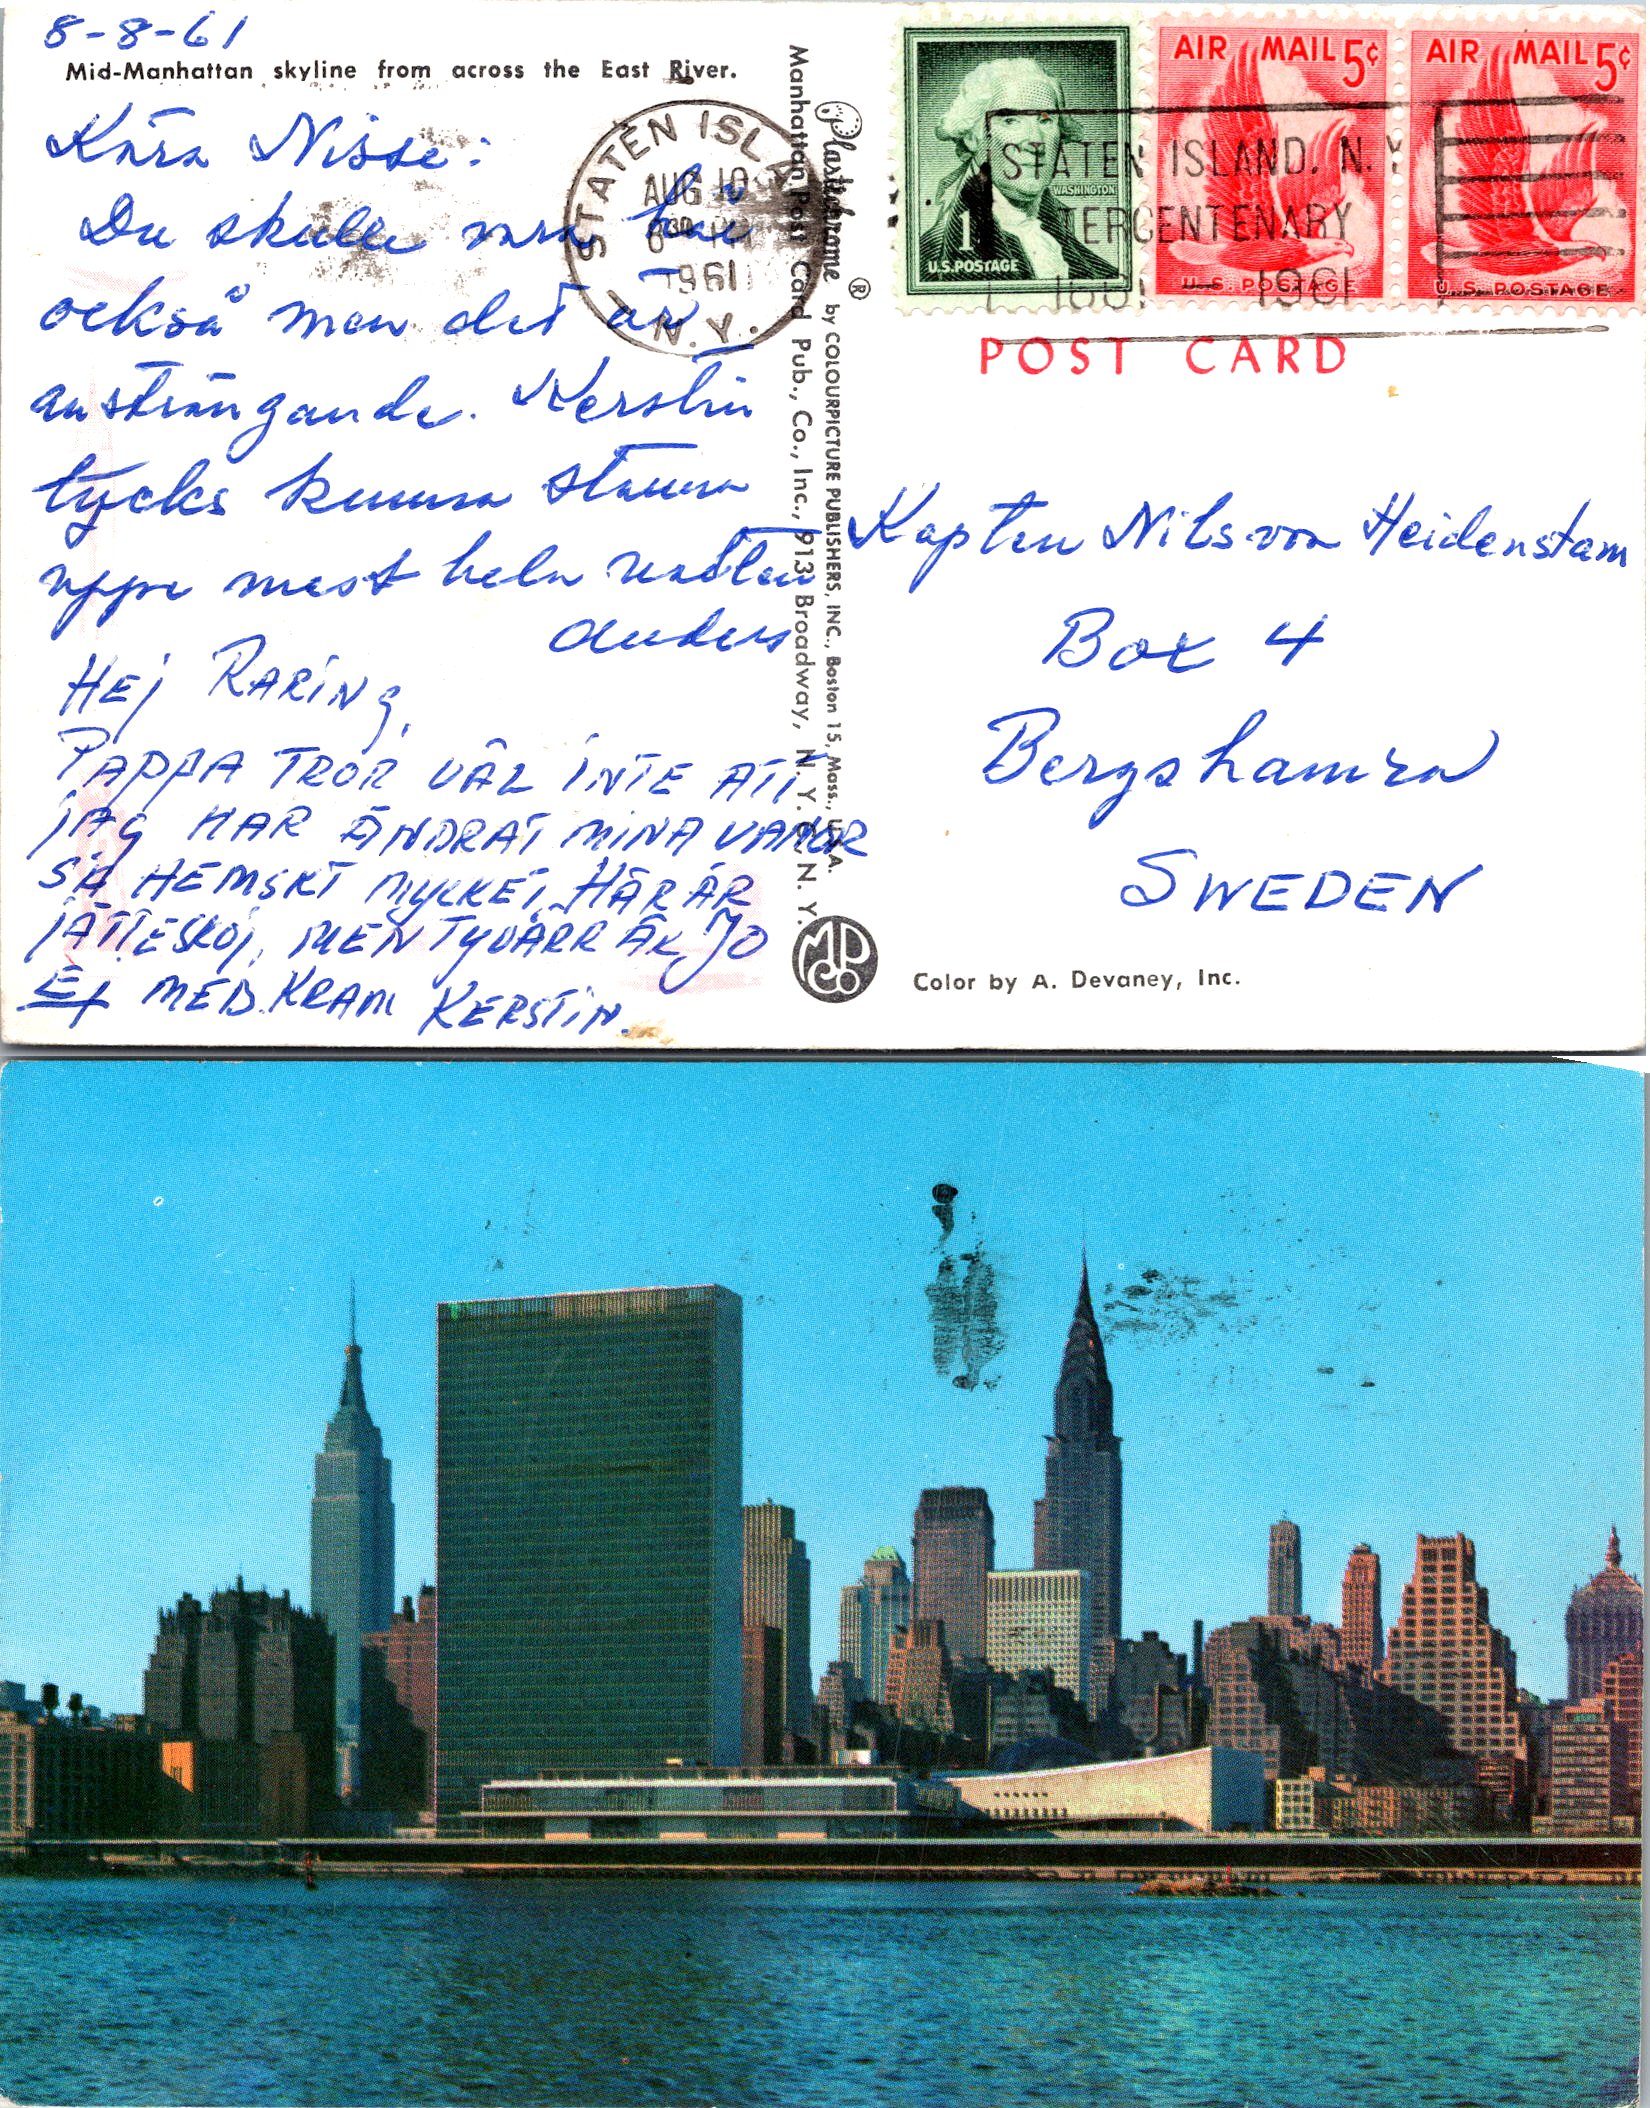 8-8-61
Mid-Manhattan skyline from across the East River.
Kära Nisse:
Du skulle vara här
också men det är
ansträngande. Kerstin
tycks kunna stanna
uppe mest hela natten
Anders
HEJ RARING,
PAPPA TROR VÄL INTE ATT
JAG HAR ÄNDRAT MINA VANOR
SÅ HEMSKT MYCKET. HÄR ÄR
JÄTTESKOJ, MEN TYVÄRR ÄR JO
EJ MED. KRAM KERSTIN.
STATEN ISLA
AUG 10
1961
N.Y.
Manhattan Post Card Pub., Co., Inc., 913 Broadway, N. Y. C., N. Y.
Plastichrome ® by COLOURPICTURE PUBLISHERS, INC., Boston 15, Mass., U.S.A.
WASHINGTON
1
U.S. POSTAGE
AIR MAIL 5¢
U.S. POSTAGE
AIR MAIL 5¢
U.S. POSTAGE
STATEN ISLAND, N.Y.
TERCENTENARY
1661 1961
POST CARD
Kapten Nils von Heidenstam
Box 4
Bergshamra
SWEDEN
Color by A. Devaney, Inc.